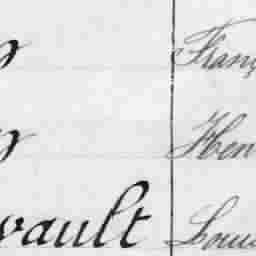 y Franç
y Hen
vault Loui